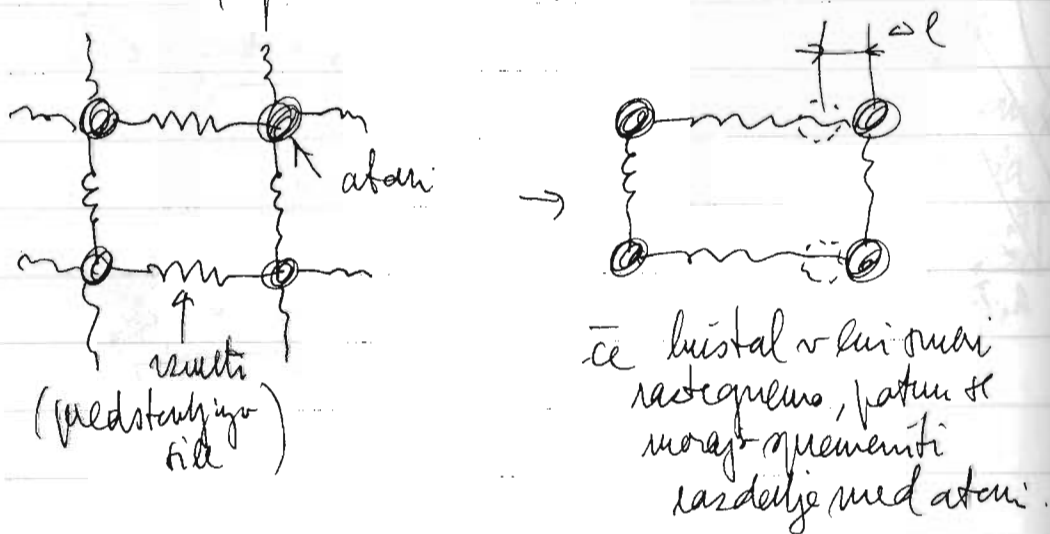 Δl
atomi
→
vzmeti
(predstavljajo
sile)
če kristal v eni smeri
raztegnemo, potem se
morajo spremeniti
razdalje med atomi.